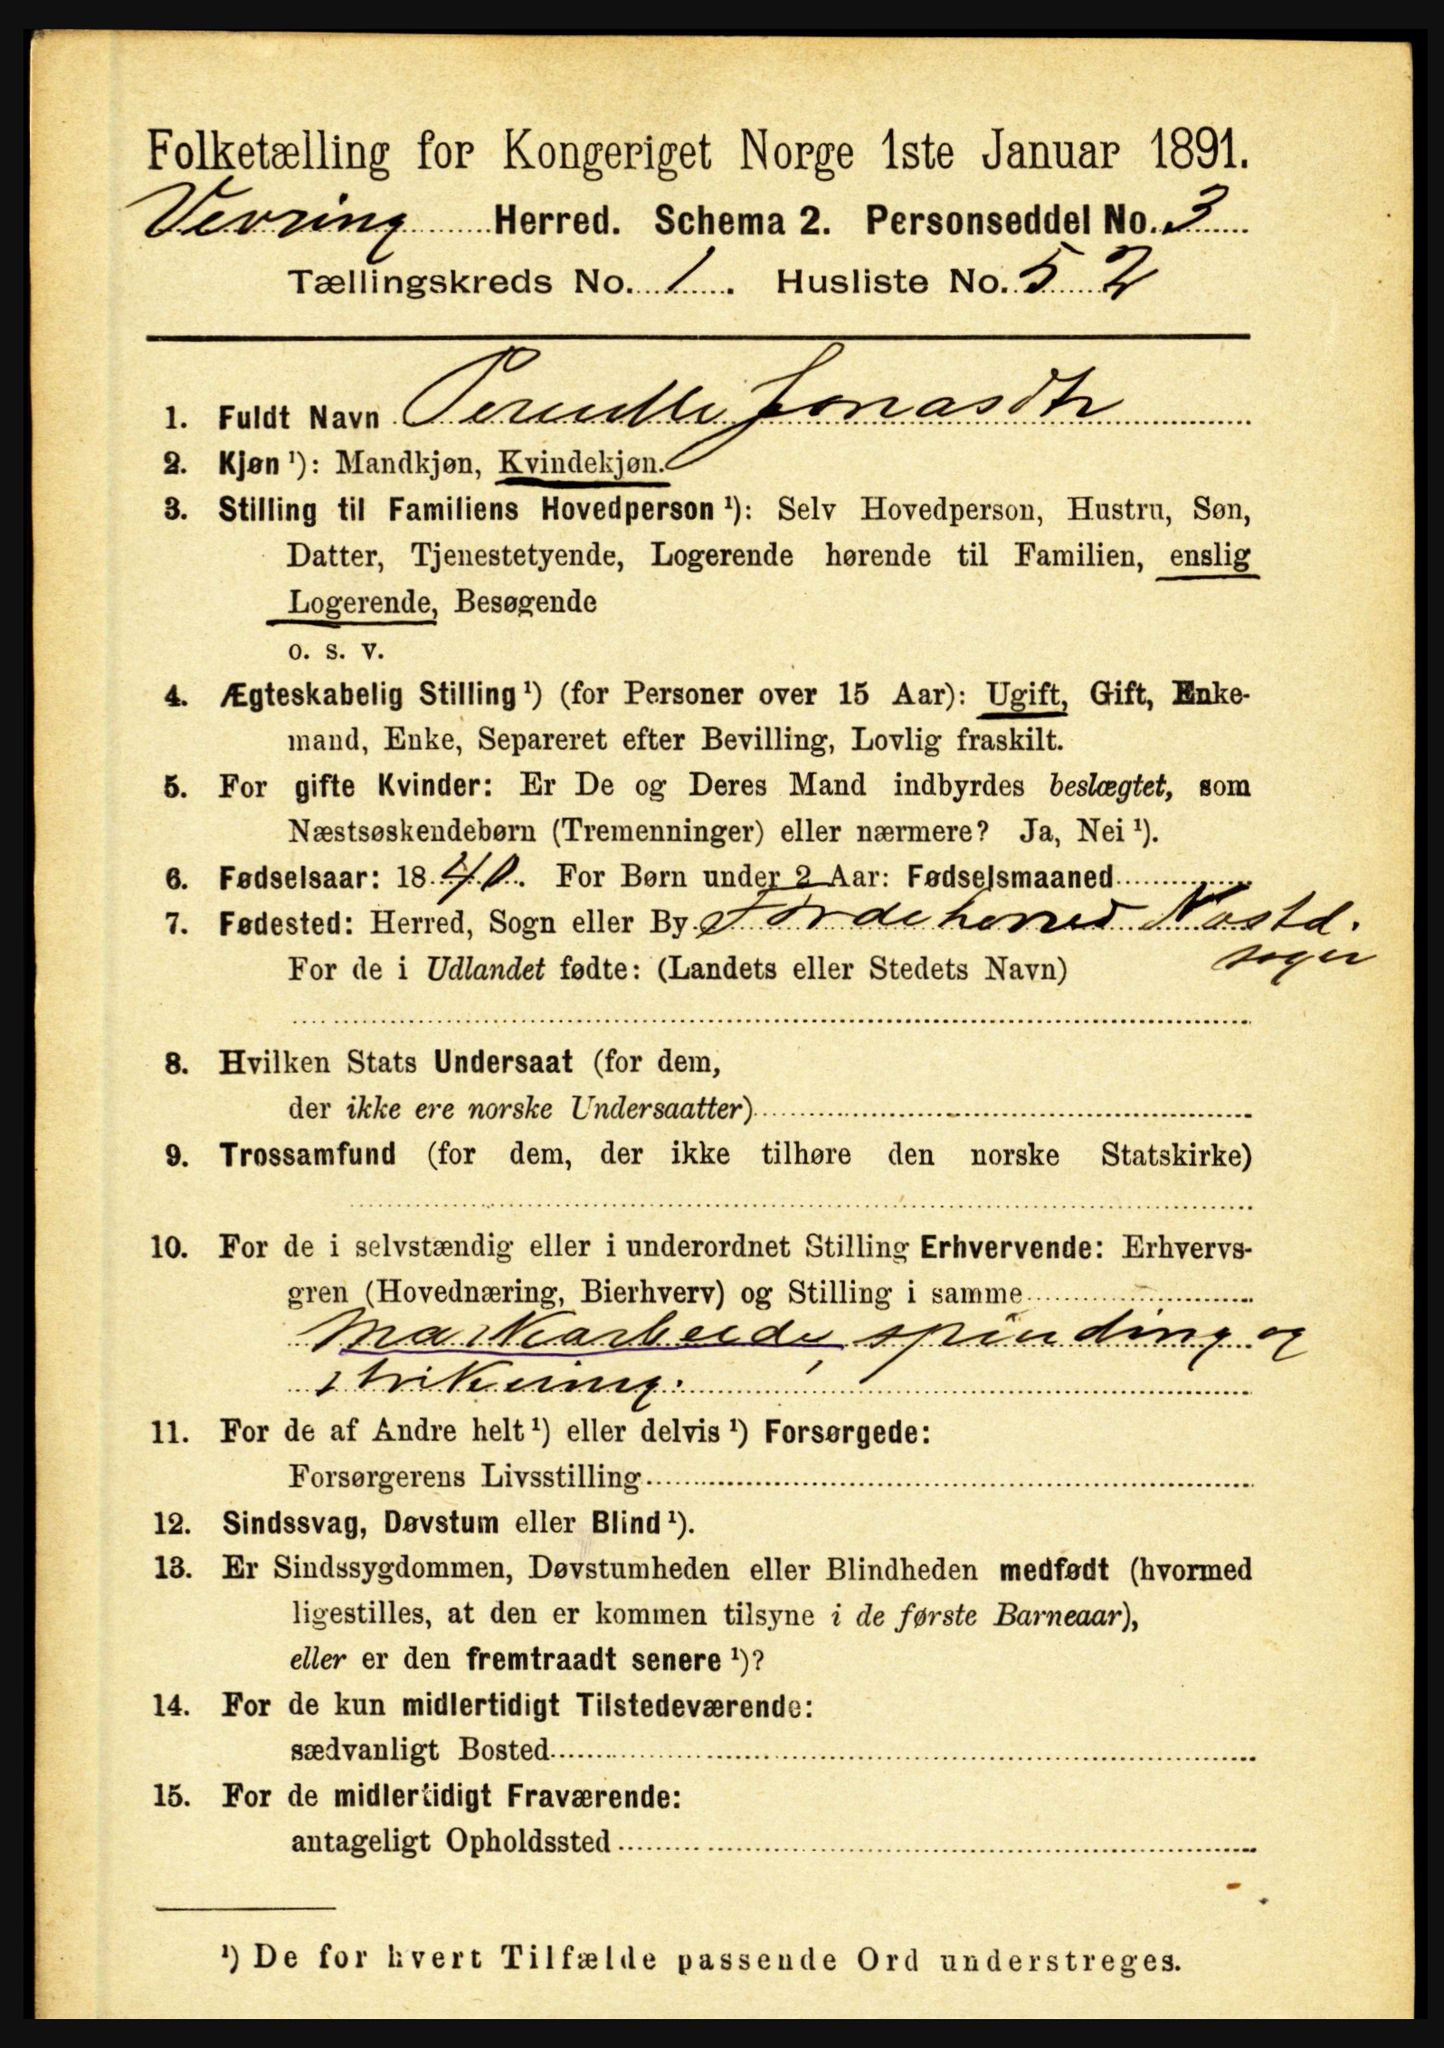 Folketælling for Kongeriget Norge 1ste Januar 1891.
Vevring Herred. Schema 2. Personseddel No. 3
Tællingskreds No. 1. Husliste No. 52
1. Fuldt Navn Pernille Jonasdtr
2. Kjøn ¹): Mandkjøn, Kvindekjøn.
3. Stilling til Familiens Hovedperson ¹): Selv Hovedperson, Hustru, Søn,
Datter, Tjenestetyende, Logerende hørende til Familien, enslig
Logerende, Besøgende
o. s. v.
4. Ægteskabelig Stilling ¹) (for Personer over 15 Aar): Ugift, Gift, Enke-
mand, Enke, Separeret efter Bevilling, Lovlig fraskilt.
5. For gifte Kvinder: Er De og Deres Mand indbyrdes beslægtet, som
Næstsøskendebørn (Tremenninger) eller nærmere? Ja, Nei ¹).
6. Fødselsaar: 1840. For Børn under 2 Aar: Fødselsmaaned
7. Fødested: Herred, Sogn eller By Førde herred Nostd.
sogn
For de i Udlandet fødte: (Landets eller Stedets Navn)
8. Hvilken Stats Undersaat (for dem,
der ikke ere norske Undersaatter)
9. Trossamfund (for dem, der ikke tilhøre den norske Statskirke)
10. For de i selvstændig eller i underordnet Stilling Erhvervende: Erhvervs-
gren (Hovednæring, Bierhverv) og Stilling i samme
Markarbeide, spinding og
strikning.
11. For de af Andre helt ¹) eller delvis ¹) Forsørgede:
Forsørgerens Livsstilling
12. Sindssvag, Døvstum eller Blind ¹).
13. Er Sindssygdommen, Døvstumheden eller Blindheden medfødt (hvormed
ligestilles, at den er kommen tilsyne i de første Barneaar),
eller er den fremtraadt senere ¹)?
14. For de kun midlertidigt Tilstedeværende:
sædvanligt Bosted
15. For de midlertidigt Fraværende:
antageligt Opholdssted
¹) De for hvert Tilfælde passende Ord understreges.